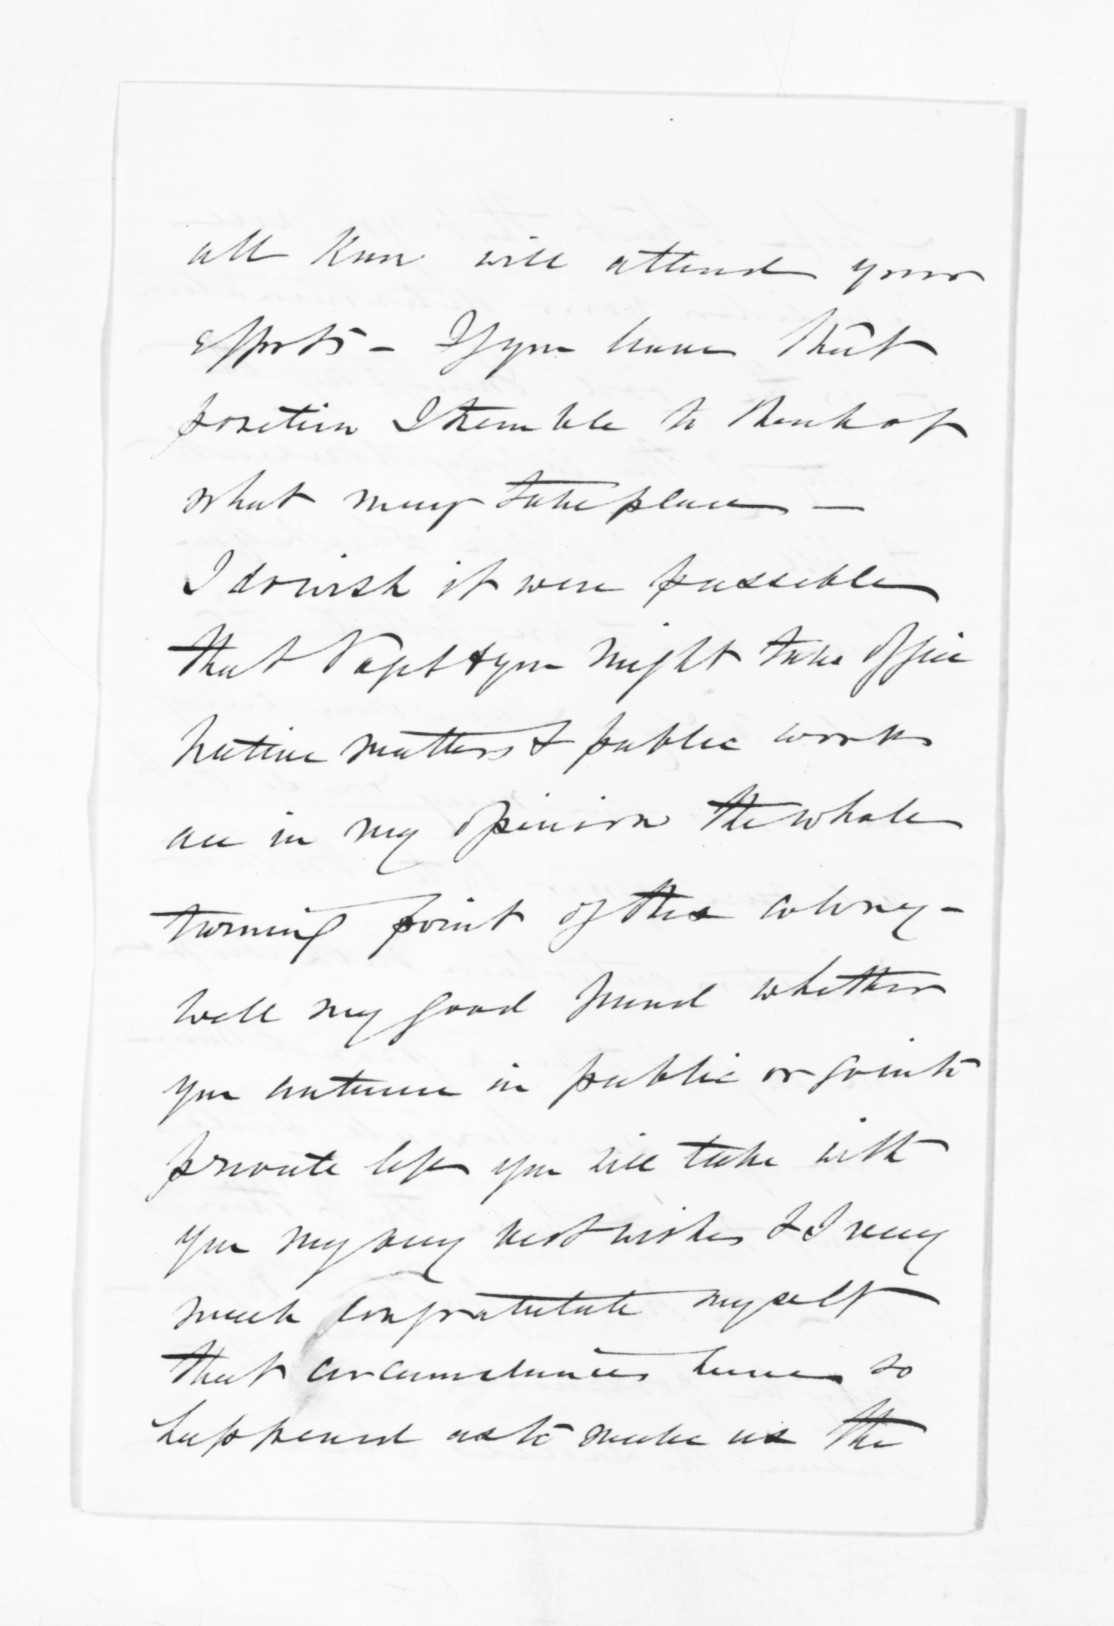 all know will attend your
efforts - If you leave that
position I tremble to think of
what may take place -
I do wish it were possible
that Vogel & you might take office
Native matters & public works
are in my opinion the whole
turning point of this colony -
Well my good friend whether
you continue in public or go into
private life you will take with
you my very best wishes & I very
much congratulate myself
that circumstances have so
happened as to make us the